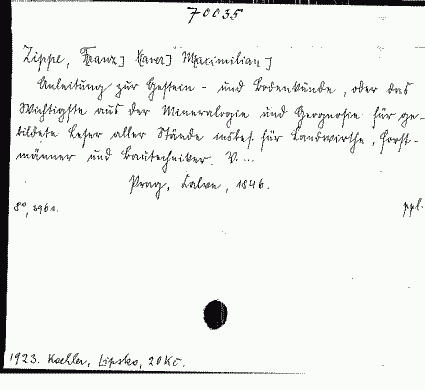 70035
Zippe, Franz] Xaver] Maximilian]
Anleitung zur Gestein- und Bodenkunde, oder das
Wichtigste aus der Mineralogie und Geognosie für ge-
bildete Leser aller Stände insbes. für Landwirthe, Forst-
männer und Bautechniker. V...
Prag, Calve, 1846.
8°, 396 s.
ppl.
1923. Koehler, Lipsko, 20 Kč.